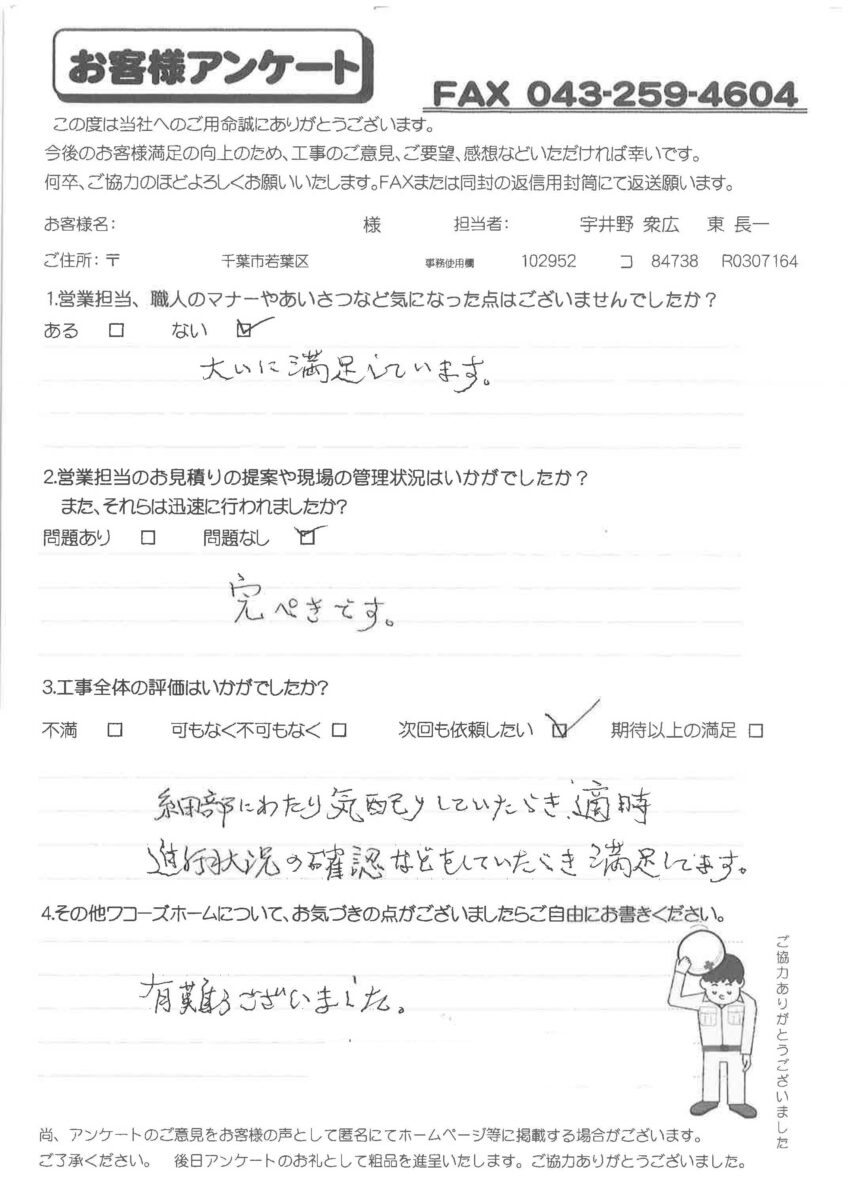 お客様アンケート
FAX 043-259-4604
この度は当社へのご用命誠にありがとうございます。
今後のお客様満足の向上のため、工事のご意見、ご要望、感想などいただければ幸いです。
何卒、ご協力のほどよろしくお願いいたします。FAXまたは同封の返信用封筒にて返送願います。
お客様名: 様 担当者: 宇井野 衆広 東 長一
ご住所:〒 千葉市若葉区 事務使用欄 102952 コ 84738 R0307164
1.営業担当、職人のマナーやあいさつなど気になった点はございませんでしたか?
ある □ ない ☑
大いに満足しています。
2.営業担当のお見積りの提案や現場の管理状況はいかがでしたか?
また、それらは迅速に行われましたか?
問題あり □ 問題なし ☑
完ぺきです。
3.工事全体の評価はいかがでしたか?
不満 □ 可もなく不可もなく □ 次回も依頼したい ☑ 期待以上の満足 □
細部にわたり気配りしていただき、適時
進行状況の確認などもしていただき満足してます。
4.その他ワコーズホームについて、お気づきの点がございましたらご自由にお書きください。
有難うございました。
ご協力ありがとうございました
尚、アンケートのご意見をお客様の声として匿名にてホームページ等に掲載する場合がございます。
ご了承ください。 後日アンケートのお礼として粗品を進呈いたします。ご協力ありがとうございました。